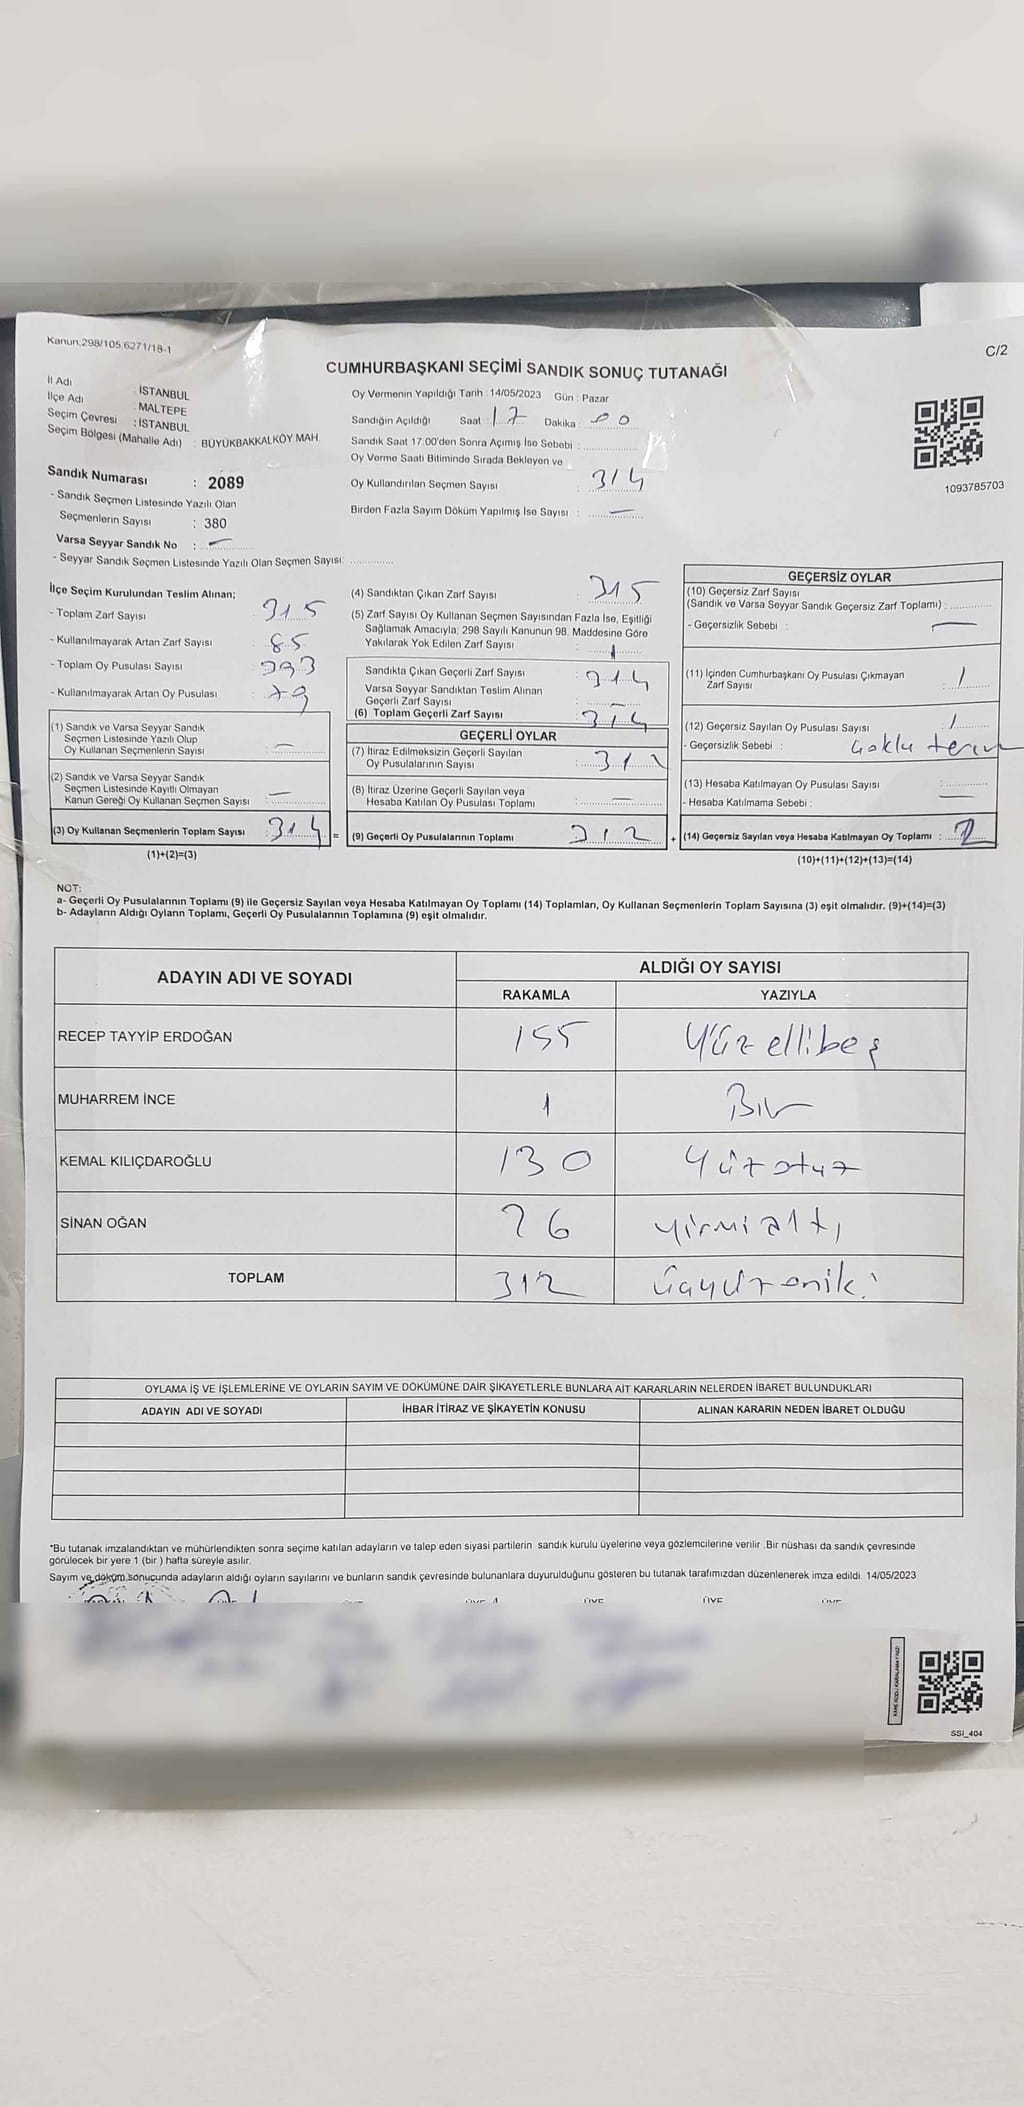 Kanun;298/105,6271/18-1
C/2
CUMHURBAŞKANI SEÇİMİ SANDIK SONUÇ TUTANAĞI
İl Adı : İSTANBUL
İlçe Adı : MALTEPE
Seçim Çevresi : İSTANBUL
Seçim Bölgesi (Mahalle Adı) : BÜYÜKBAKKALKÖY MAH.
Sandık Numarası : 2089
- Sandık Seçmen Listesinde Yazılı Olan
Seçmenlerin Sayısı : 380
Varsa Seyyar Sandık No : —
- Seyyar Sandık Seçmen Listesinde Yazılı Olan Seçmen Sayısı: ..............
Oy Vermenin Yapıldığı Tarih : 14/05/2023 Gün : Pazar
Sandığın Açıldığı Saat : 17 Dakika : 00
Sandık Saat 17.00'den Sonra Açımış İse Sebebi : ..............
Oy Verme Saati Bitiminde Sırada Bekleyen ve
Oy Kullandırılan Seçmen Sayısı : 314
Birden Fazla Sayım Döküm Yapılmış İse Sayısı : —
1093785703
İlçe Seçim Kurulundan Teslim Alınan;
- Toplam Zarf Sayısı : 315
- Kullanılmayarak Artan Zarf Sayısı : 85
- Toplam Oy Pusulası Sayısı : 393
- Kullanılmayarak Artan Oy Pusulası : 79
(1) Sandık ve Varsa Seyyar Sandık
Seçmen Listesinde Yazılı Olup
Oy Kullanan Seçmenlerin Sayısı : —
(2) Sandık ve Varsa Seyyar Sandık
Seçmen Listesinde Kayıtlı Olmayan
Kanun Gereği Oy Kullanan Seçmen Sayısı : —
(3) Oy Kullanan Seçmenlerin Toplam Sayısı : 314 =
(1)+(2)=(3)
(4) Sandıktan Çıkan Zarf Sayısı : 315
(5) Zarf Sayısı Oy Kullanan Seçmen Sayısından Fazla İse, Eşitliği
Sağlamak Amacıyla; 298 Sayılı Kanunun 98. Maddesine Göre
Yakılarak Yok Edilen Zarf Sayısı : 1
Sandıkta Çıkan Geçerli Zarf Sayısı : 314
Varsa Seyyar Sandıktan Teslim Alınan
Geçerli Zarf Sayısı : —
(6) Toplam Geçerli Zarf Sayısı : 314
GEÇERLİ OYLAR
(7) İtiraz Edilmeksizin Geçerli Sayılan
Oy Pusulalarının Sayısı : 312
(8) İtiraz Üzerine Geçerli Sayılan veya
Hesaba Katılan Oy Pusulası Toplamı : —
(9) Geçerli Oy Pusulalarının Toplamı : 312 +
GEÇERSİZ OYLAR
(10) Geçersiz Zarf Sayısı
(Sandık ve Varsa Seyyar Sandık Geçersiz Zarf Toplamı) : ..............
- Geçersizlik Sebebi : —
(11) İçinden Cumhurbaşkanı Oy Pusulası Çıkmayan
Zarf Sayısı : 1
(12) Geçersiz Sayılan Oy Pusulası Sayısı : 1
- Geçersizlik Sebebi : Çoklu
(13) Hesaba Katılmayan Oy Pusulası Sayısı : ..............
- Hesaba Katılmama Sebebi : —
(14) Geçersiz Sayılan veya Hesaba Katılmayan Oy Toplamı : 2
(10)+(11)+(12)+(13)=(14)
NOT:
a- Geçerli Oy Pusulalarının Toplamı (9) ile Geçersiz Sayılan veya Hesaba Katılmayan Oy Toplamı (14) Toplamları, Oy Kullanan Seçmenlerin Toplam Sayısına (3) eşit olmalıdır. (9)+(14)=(3)
b- Adayların Aldığı Oyların Toplamı, Geçerli Oy Pusulalarının Toplamına (9) eşit olmalıdır.
ADAYIN ADI VE SOYADI ALDIĞI OY SAYISI
RAKAMLA YAZIYLA
RECEP TAYYİP ERDOĞAN 155 Yüzellibeş
MUHARREM İNCE 1 Bir
KEMAL KILIÇDAROĞLU 130 Yüzotuz
SİNAN OĞAN 26 yirmialtı
TOPLAM 312 üçyüzoniki
OYLAMA İŞ VE İŞLEMLERİNE VE OYLARIN SAYIM VE DÖKÜMÜNE DAİR ŞİKAYETLERLE BUNLARA AİT KARARLARIN NELERDEN İBARET BULUNDUKLARI
ADAYIN ADI VE SOYADI İHBAR İTİRAZ VE ŞİKAYETİN KONUSU ALINAN KARARIN NEDEN İBARET OLDUĞU
*Bu tutanak imzalandıktan ve mühürlendikten sonra seçime katılan adayların ve talep eden siyasi partilerin sandık kurulu üyelerine veya gözlemcilerine verilir .Bir nüshası da sandık çevresinde
görülecek bir yere 1 (bir ) hafta süreyle asılır.
Sayım ve döküm sonucunda adayların aldığı oyların sayılarını ve bunların sandık çevresinde bulunanlara duyurulduğunu gösteren bu tutanak tarafımızdan düzenlenerek imza edildi. 14/05/2023
ÜYE ÜYE ÜYE ÜYE
SSI_404